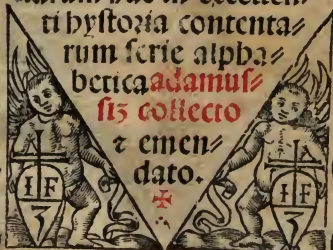 ti hystoria contenta⸗
rum serie alpha⸗
betica adamus⸗
siʒ collecto
⁊ emen⸗
dato.
I F
I F